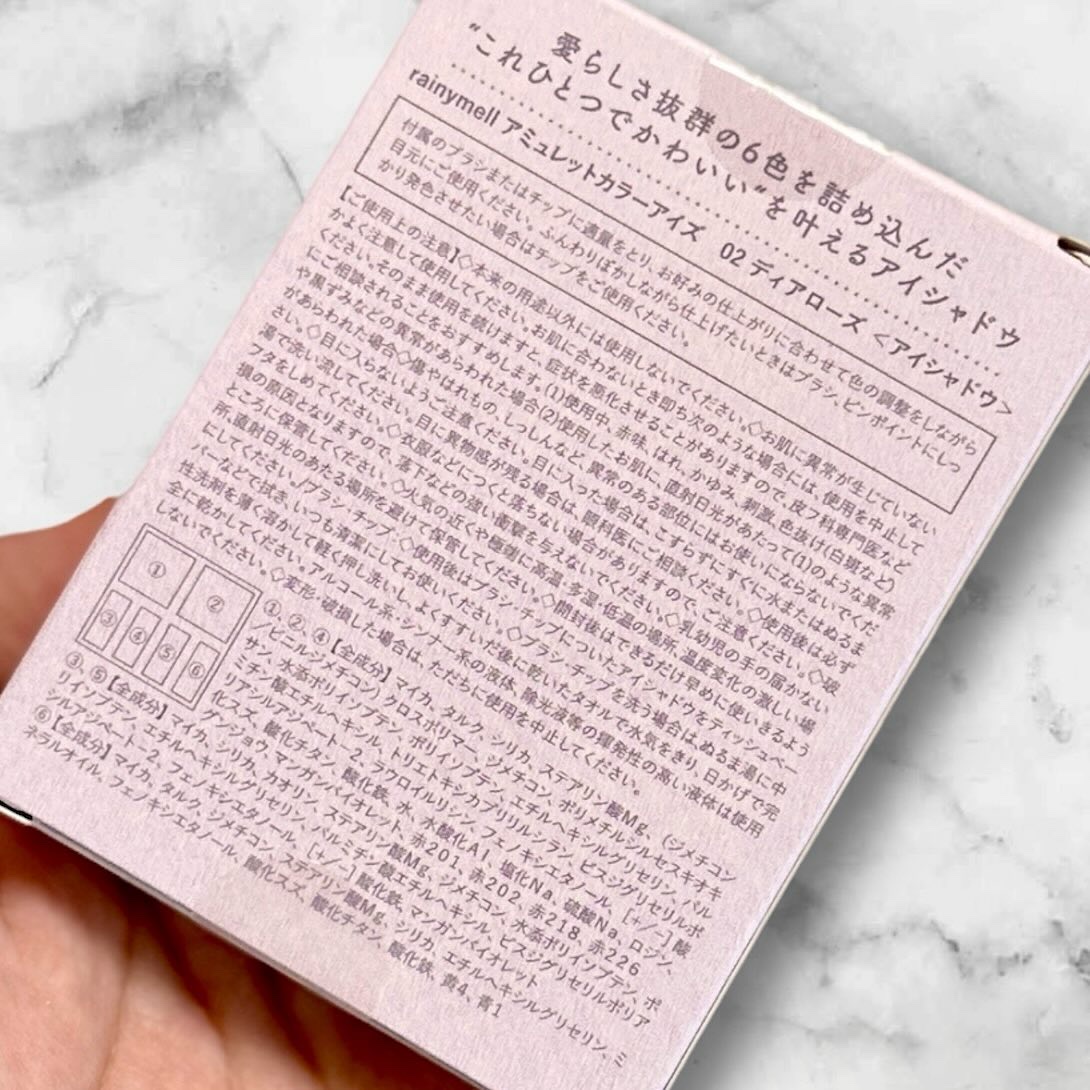 愛らしさ抜群の6色を詰め込んだ
“これひとつでかわいい”を叶えるアイシャドウ
rainymell アミュレットカラーアイズ 02 ディアローズ <アイシャドウ>
付属のブラシまたはチップに適量をとり、お好みの仕上がりに合わせて色の調整をしながら
目元にご使用ください。ふんわりぼかしながら仕上げたいときはブラシ、ピンポイントにしっ
かり発色させたい場合はチップをご使用ください。
【ご使用上の注意】◇本来の用途以外には使用しないでください。◇お肌に異常が生じていない
かよく注意して使用してください。お肌に合わないとき即ち次のような場合には、使用を中止して
ください。そのまま使用を続けますと、症状を悪化させることがありますので、皮フ科専門医など
にご相談されることをおすすめします。(1)使用中、赤味、はれ、かゆみ、刺激、色抜け(白斑など)
や黒ずみなどの異常があらわれた場合(2)使用したお肌に、直射日光があたって(1)のような異常
があらわれた場合◇傷やはれもの、しっしんなど、異常のある部位にはお使いにならないでくだ
さい。◇目に入らないようご注意ください。目に入った場合は、こすらずにすぐに水またはぬるま
湯で洗い流してください。目に異物感が残る場合は、眼科医にご相談ください。◇使用後は必ず
フタをしめてください。◇衣服などにつくと落ちない場合がありますので、ご注意ください。◇破
損の原因となりますので、落下などの強い衝撃を与えないでください。◇乳幼児の手の届かない
ところに保管してください。◇火気の近くや極端に高温・多湿・低温の場所、温度変化の激しい場
所、直射日光のあたる場所を避けて保管してください。◇開封後はできるだけ早めに使いきるよう
にしてください。/ブラシ・チップ:◇使用後はブラシ・チップについたアイシャドウをティッシュペー
パーなどで拭き、いつも清潔にしてお使いください。◇ブラシ・チップを洗う場合は、ぬるま湯に中
性洗剤を薄く溶かして軽く押し洗いし、よくすすいだ後に乾いたタオルで水気をきり、日かげで完
全に乾かしてください。アルコール系・シンナー系の液体、除光液等の揮発性の高い液体は使用
しないでください。◇変形・破損した場合は、ただちに使用を中止してください。
①
②
③
④
⑤
⑥
①、②、④【全成分】マイカ、タルク、シリカ、ステアリン酸Mg、(ジメチコン
/ビニルジメチコン)クロスポリマー、ジメチコン、ポリメチルシルセスキオキ
サン、水添ポリイソブテン、ポリイソブテン、エチルヘキシルグリセリン、パル
ミチン酸エチルヘキシル、トリエトキシカプリリルシラン、ビスジグリセリルポ
リアシルアジペート-2、ラウロイルリシン、フェノキシエタノール、[+/-]酸
化スズ、酸化チタン、酸化鉄、水、水酸化Al、塩化Na、硫酸Na、ロジン、
グンジョウ、マンガンバイオレット、赤201、赤202、赤218、赤226
③、⑤【全成分】マイカ、シリカ、カオリン、ステアリン酸Mg、ジメチコン、水添ポリイソブテン、ポ
リイソブテン、エチルヘキシルグリセリン、パルミチン酸エチルヘキシル、ビスジグリセリルポリア
シルアジペート-2、フェノキシエタノール、[+/-]酸化鉄、マンガンバイオレット
⑥【全成分】マイカ、タルク、ジメチコン、ステアリン酸Mg、シリカ、エチルヘキシルグリセリン、ミ
ネラルオイル、フェノキシエタノール、酸化スズ、酸化チタン、酸化鉄、黄4、青1